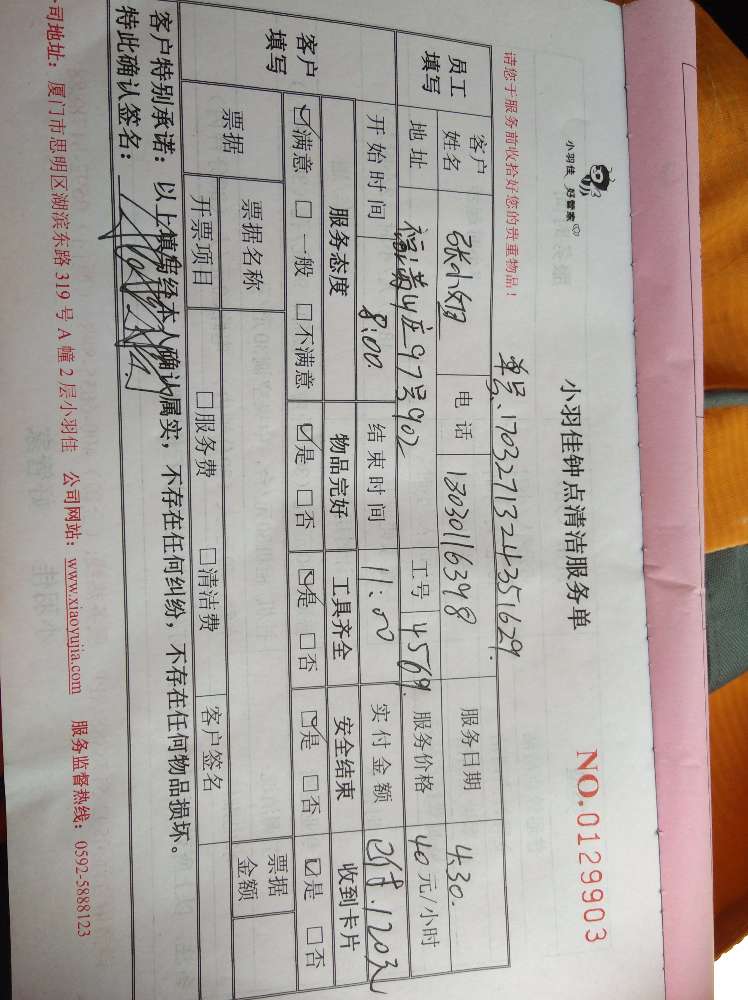 小羽佳 好管家
小羽佳钟点清洁服务单
NO.0129903
单号:1703271324351629.
请您于服务前收拾好您的贵重物品!
员工填写 客户姓名 张小姐 电话 18030116398 服务日期 4.30.
地址 97号902 工号 4569. 服务价格 40元/小时
开始时间 8:00. 结束时间 11:00 实付金额 已付.120元
客户填写 服务态度 物品完好 工具齐全 安全结束 收到卡片
☑满意 □一般 □不满意 ☑是 □否 ☑是 □否 ☑是 □否 ☑是 □否
票据 票据名称 票据金额
开票项目 □服务费 □清洁费 客户签名
客户特别承诺:以上填写经本人确认属实,不存在任何纠纷,不存在任何物品损坏。
特此确认签名:
司地址:厦门市思明区湖滨东路 319 号 A 幢 2 层小羽佳 公司网站:www.xiaoyujia.com 服务监督热线:0592-5888123